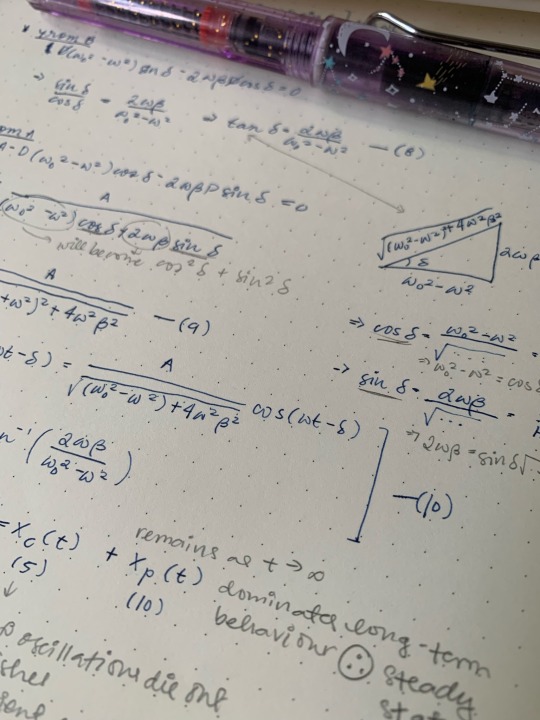 * from B
D(ω₀² - ω²) sin δ - 2ωβD cos δ = 0
⇒ sin δ / cos δ = 2ωβ / ω₀² - ω² ⇒ tan δ = 2ωβ / ω₀² - ω² — (8)
om A
A - D(ω₀² - ω²) cos δ - 2ωβD sin δ = 0
A
(ω₀² - ω²) cos δ + 2ωβ sin δ
will become cos² δ + sin² δ
√(ω₀² - ω²)² + 4ω²β²
2ωβ
δ
ω₀² - ω²
A
+ ω²)² + 4ω²β² — (9)
⇒ cos δ = ω₀² - ω² / √..... =
⇒ ω₀² - ω² = cos δ
ωt - δ) = A / √(ω₀² - ω²) + 4ω²β² cos(ωt - δ)
→ sin δ = 2ωβ / √..... =
⇒ 2ωβ = sin δ √...
n⁻¹ (2ωβ / ω₀² - ω²)
— (10)
= Xc(t) + Xp(t)
(5) (10)
↓
remains as t → ∞
dominates long-term
behaviour ∴ steady
stat
oscillations die out
ishes